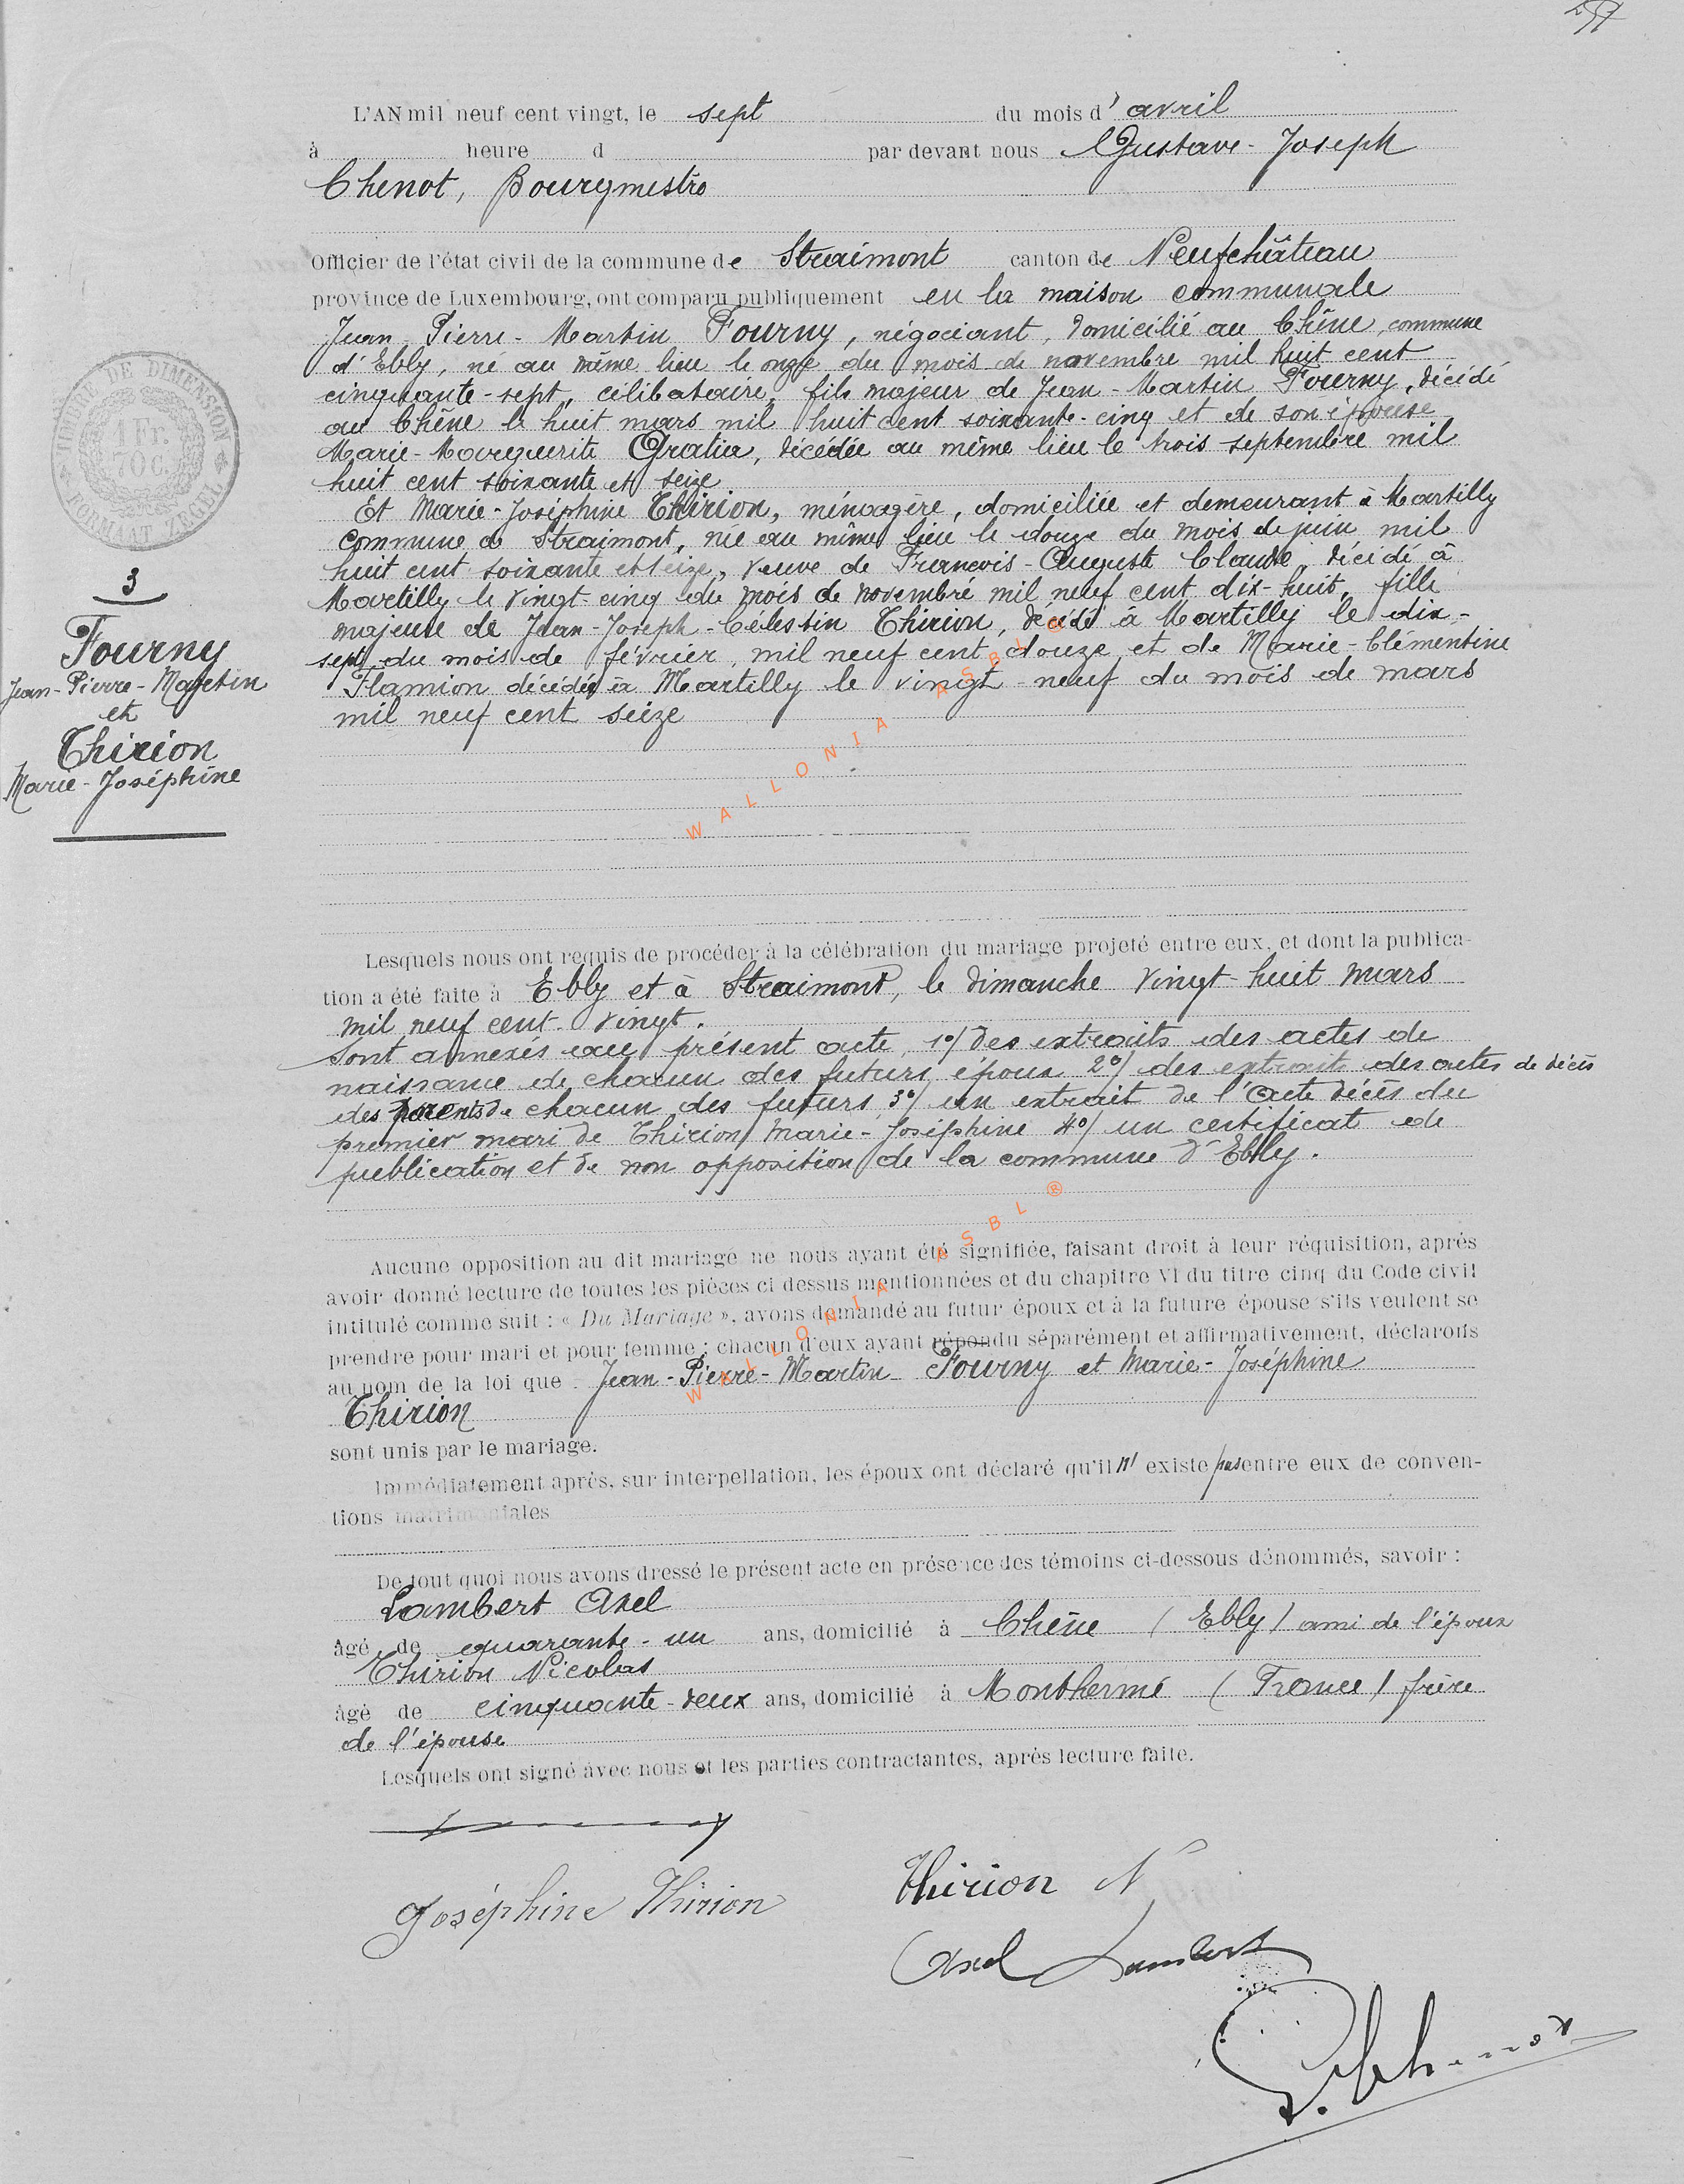 L'AN mil neuf cent vingt, le sept du mois d' avril
à heure d par devant nous Gustave-Joseph
Chenot, Bourgmestre
Officier de l'état civil de la commune de Straimont canton de Neufchâteau
province de Luxembourg, ont comparu publiquement en la maison communale
Jean-Pierre-Martin Fourny, négociant, domicilié au Chêne, commune
d'Ebly, né au même lieu le onze du mois de novembre mil huit cent
cinquante-sept, célibataire, fils majeur de Jean-Martin Fourny, décédé
au Chêne le huit mars mil huit cent soixante-cinq et de son épouse
Marie-Marguerite Gratia, décédée au même lieu le trois septembre mil
huit cent soixante et seize
Et Marie-Joséphine Thirion, ménagère, domiciliée et demeurant à Martilly
commune de Straimont, née au même lieu le douze du mois de juin mil
huit cent soixante et seize, veuve de François-Auguste Claude, décédé à
Martilly le vingt-cinq du mois de novembre mil neuf cent dix-huit, fille
majeure de Jean-Joseph-Célestin Thirion, décédé à Martilly le dix-
sept du mois de février, mil neuf cent douze et de Marie-Clémentine
Flamion décédée à Martilly le vingt-neuf du mois de mars
mil neuf cent seize
TIMBRE DE DIMENSION
1 Fr.
70 c.
FORMAAT ZEGEL
3
Fourny
Jean-Pierre-Martin
et
Thirion
Marie-Joséphine
WALLONIA ASBL ®
Lesquels nous ont requis de procéder à la célébration du mariage projeté entre eux, et dont la publica-
tion a été faite à Ebly et à Straimont, le dimanche vingt-huit mars
mil neuf cent vingt.
Sont annexés au présent acte, 1°/ des extraits des actes de
naissance de chacun des futurs époux 2°/ des extraits des actes de décès
des parents de chacun des futurs 3°/ un extrait de l'acte décès du
premier mari de Thirion Marie-Joséphine 4°/ un certificat de
publication et de non opposition de la commune d'Ebly.
Aucune opposition au dit mariage ne nous ayant été signifiée, faisant droit à leur réquisition, après
avoir donné lecture de toutes les pièces ci dessus mentionnées et du chapitre VI du titre cinq du Code civil
intitulé comme suit : « Du Mariage », avons demandé au futur époux et à la future épouse s'ils veulent se
prendre pour mari et pour femme ; chacun d'eux ayant répondu séparément et affirmativement, déclarons
au nom de la loi que Jean-Pierre-Martin Fourny et Marie-Joséphine
Thirion
sont unis par le mariage.
WALLONIA ASBL ®
Immédiatement après, sur interpellation, les époux ont déclaré qu'il n' existe pas entre eux de conven-
tions matrimoniales
De tout quoi nous avons dressé le présent acte en présence des témoins ci-dessous dénommés, savoir :
Lambert Axel
âgé de quarante-un ans, domicilié à Chêne (Ebly) ami de l'époux
Thirion Nicolas
âgé de cinquante-deux ans, domicilié à Monthermé (France) frère
de l'épouse
Lesquels ont signé avec nous et les parties contractantes, après lecture faite.
Joséphine Thirion
Thirion N
Axel Lambert